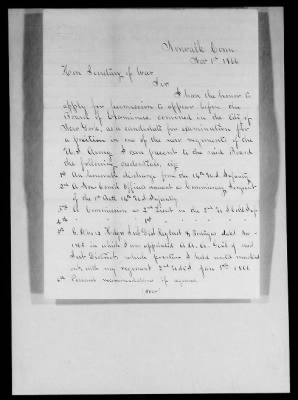 Norwalk Conn
Nov 1st 1866
Hon Secretary of War
Sir
I have the honor to
apply for permission to appear before the
Board of Examiners convened in the City of
New York, as a candidate for examination for
a position in one of the new regiments of the
U.S. Army. I can present to the said Board
the following credentials, viz
1st An honorable discharge from the 16th U.S. Infantry
2d A Non Com'd Officers warrant as Commissary Sergeant
of the 1st Batt 16th U.S. Infantry
3d A Commission as 2d Lieut in the 2nd
4th " " " 1st " " "
5th
in which I am appointed A. A. A. Genl of said
Sub District which position I held until mustered
out with my regiment Jany 5th 1866
6th Personal recommendations if required
(over)